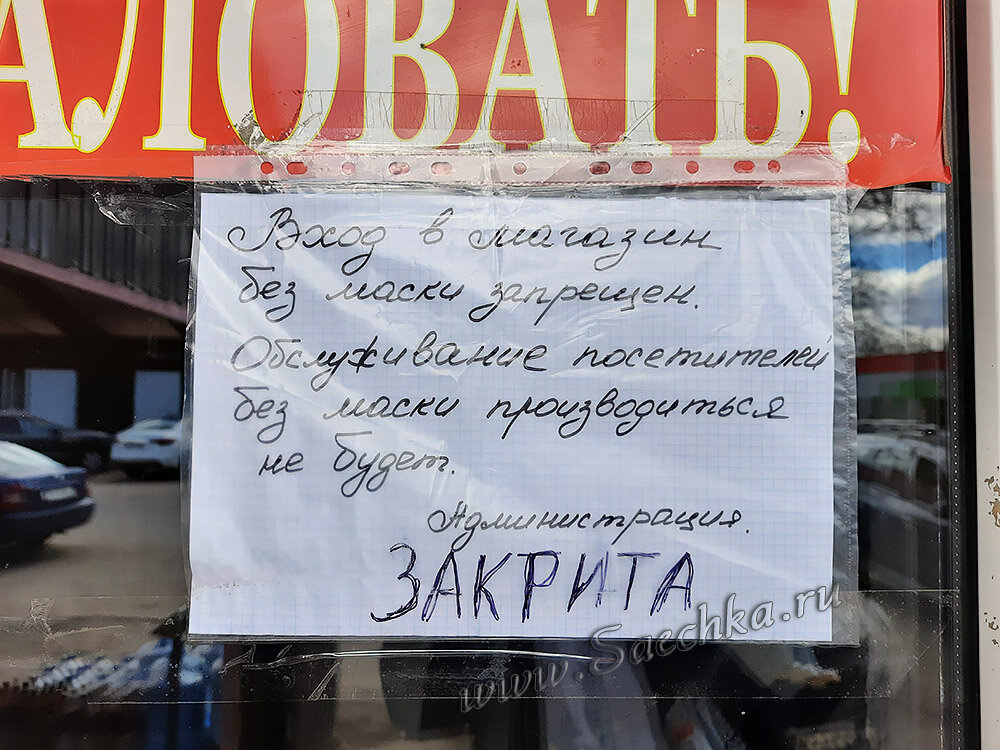 АЛОВАТЬ!
Вход в магазин
без маски запрещен.
Обслуживание посетителей
без маски производиться
не будет.
Администрация.
ЗАКРИТА
www.Sacchka.ru